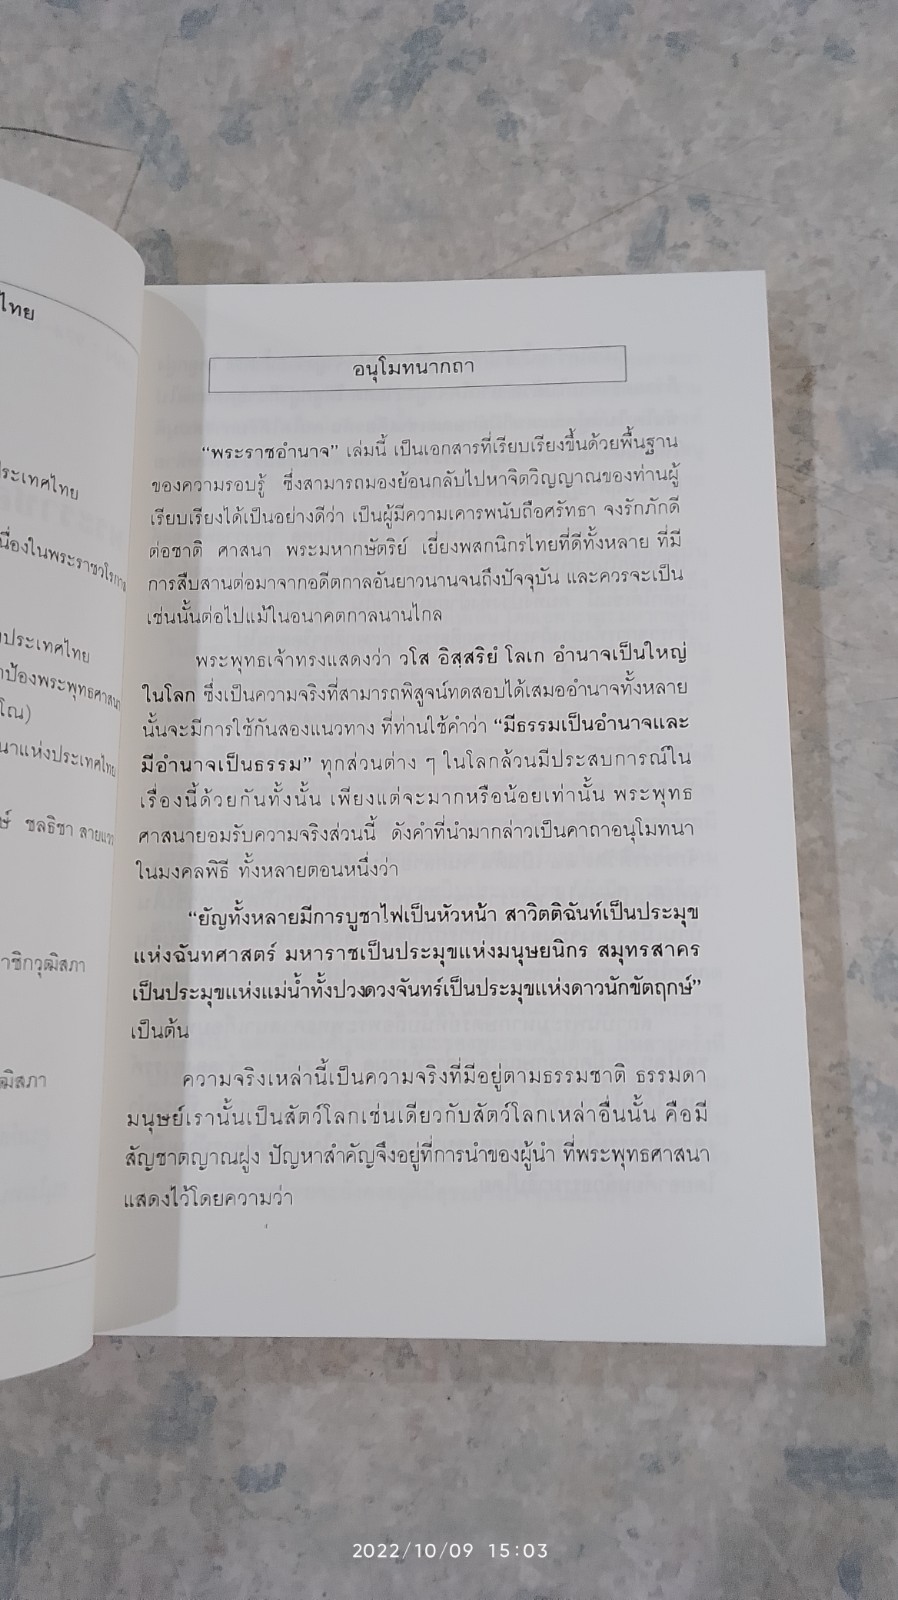 ไทย
ประเทศไทย
นื่องในพระราชวโรกาส
ประเทศไทย
าป้องพระพุทธศาสนา
โณ)
นาแห่งประเทศไทย
ษ์ ชลธิชา สายแวว
าชิกวุฒิสภา
ฒิสภา
อนุโมทนากถา
“พระราชอำนาจ” เล่มนี้ เป็นเอกสารที่เรียบเรียงขึ้นด้วยพื้นฐาน
ของความรอบรู้ ซึ่งสามารถมองย้อนกลับไปหาจิตวิญญาณของท่านผู้
เรียบเรียงได้เป็นอย่างดีว่า เป็นผู้มีความเคารพนับถือศรัทธา จงรักภักดี
ต่อชาติ ศาสนา พระมหากษัตริย์ เยี่ยงพสกนิกรไทยที่ดีทั้งหลาย ที่มี
การสืบสานต่อมาจากอดีตกาลอันยาวนานจนถึงปัจจุบัน และควรจะเป็น
เช่นนั้นต่อไปแม้ในอนาคตกาลนานไกล
พระพุทธเจ้าทรงแสดงว่า วโส อิสฺสริยํ โลเก อำนาจเป็นใหญ่
ในโลก ซึ่งเป็นความจริงที่สามารถพิสูจน์ทดสอบได้เสมออำนาจทั้งหลาย
นั้นจะมีการใช้กันสองแนวทาง ที่ท่านใช้คำว่า “มีธรรมเป็นอำนาจและ
มีอำนาจเป็นธรรม” ทุกส่วนต่าง ๆ ในโลกล้วนมีประสบการณ์ใน
เรื่องนี้ด้วยกันทั้งนั้น เพียงแต่จะมากหรือน้อยเท่านั้น พระพุทธ
ศาสนายอมรับความจริงส่วนนี้ ดังคำที่นำมากล่าวเป็นคาถาอนุโมทนา
ในมงคลพิธี ทั้งหลายตอนหนึ่งว่า
“ยัญทั้งหลายมีการบูชาไฟเป็นหัวหน้า สาวิตติฉันท์เป็นประมุข
แห่งฉันทศาสตร์ มหาราชเป็นประมุขแห่งมนุษยนิกร สมุทรสาคร
เป็นประมุขแห่งแม่น้ำทั้งปวงดวงจันทร์เป็นประมุขแห่งดาวนักขัตฤกษ์”
เป็นต้น
ความจริงเหล่านี้เป็นความจริงที่มีอยู่ตามธรรมชาติ ธรรมดา
มนุษย์เรานั้นเป็นสัตว์โลกเช่นเดียวกับสัตว์โลกเหล่าอื่นนั้น คือมี
สัญชาตญาณฝูง ปัญหาสำคัญจึงอยู่ที่การนำของผู้นำ ที่พระพุทธศาสนา
แสดงไว้โดยความว่า
2022/10/09 15:03